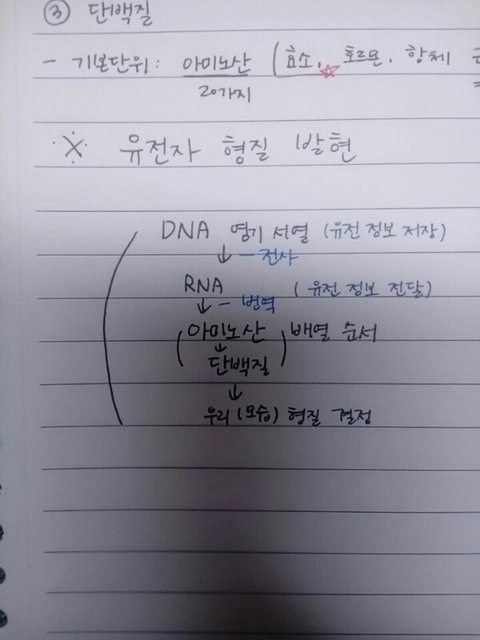 ③ 단백질
- 기본단위: 아미노산 (효소, ☆ 호르몬, 항체
20가지
※ 유전자 형질 발현
DNA 염기 서열 (유전 정보 저장)
↓ - 전사
RNA (유전 정보 전달)
↓ - 번역
(아미노산) 배열 순서
↓
단백질
↓
우리 (모습) 형질 결정